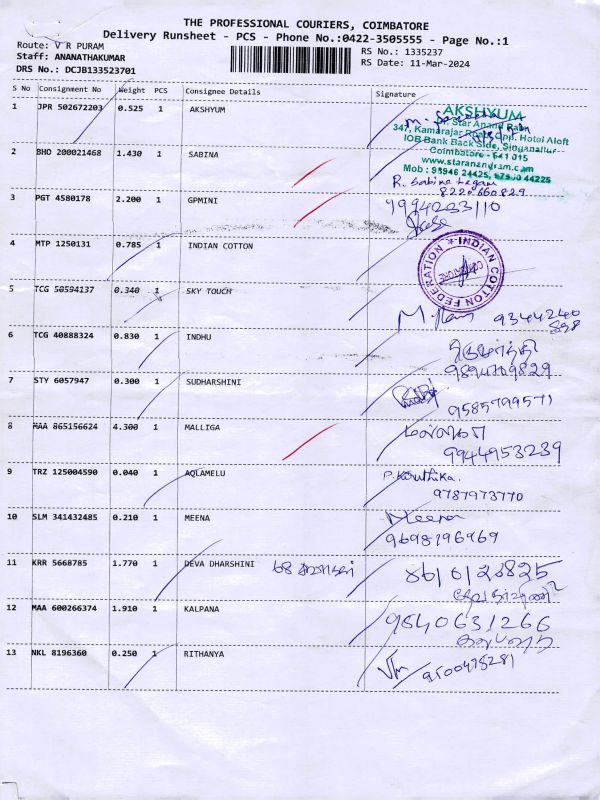 THE PROFESSIONAL COURIERS, COIMBATORE
Delivery Runsheet - PCS - Phone No.:0422-3505555 - Page No.:1
Route: V R PURAM
Staff: ANANATHAKUMAR
DRS No.: DCJB133523701
RS No.: 1335237
RS Date: 11-Mar-2024
S No Consignment No Weight PCS Consignee Details Signature
1 JPR 502672203 0.525 1 AKSHYUM
AKSHYUM
Star Anand Ram
347, Kamarajar Road, Opp. Hotel Aloft
IOB Bank Back Side, Singanallur
Coimbatore - 641 015
www.staranandram.com
Mob : 98946 24425, 44225
2 BHO 200021468 1.430 1 SABINA
R. Sabina begam
8220660829
3 PGT 4580178 2.200 1 GPMINI
9994233110
4 MTP 1250131 0.785 1 INDIAN COTTON
INDIAN COTTON FEDERATION
COIMBATORE
5 TCG 50594137 0.340 1 SKY TOUCH
9344240
6 TCG 40888324 0.830 1 INDHU
9894709829
7 STY 6057947 0.300 1 SUDHARSHINI
9585799571
8 MAA 865156624 4.300 1 MALLIGA
மல்லிகா
9944953239
9 TRZ 125004590 0.040 1 AQLAMELU
P. Karuthika.
9787973770
10 SLM 341432485 0.210 1 MEENA
Meena
9698196969
11 KRR 5668785 1.770 1 DEVA DHARSHINI
8610120825
12 MAA 600266374 1.910 1 KALPANA
9840631266
கல்பனா
13 NKL 8196360 0.250 1 RITHANYA
9500475281